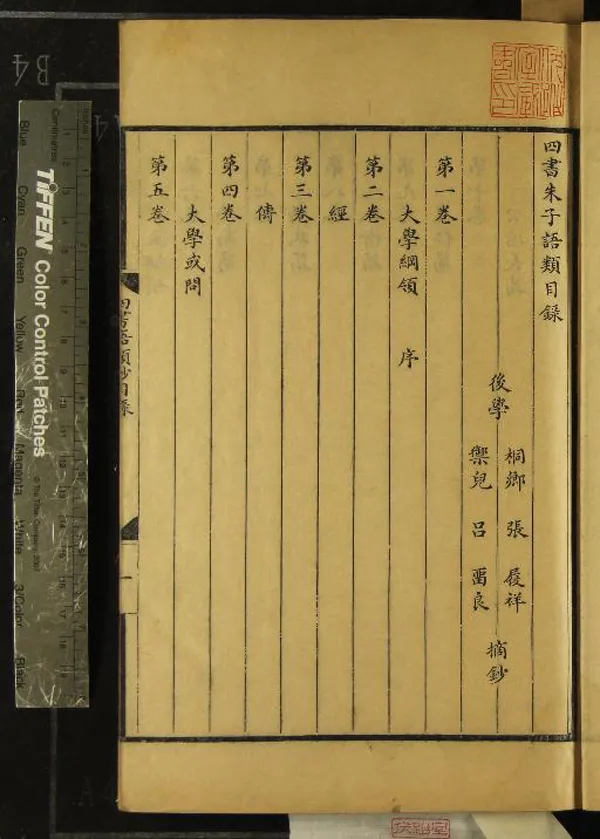 四書朱子語類目錄
後學
桐鄉 張 履祥
禦兒 呂 畱良
摘鈔
第一卷
大學綱領 序
第二卷
經
第三卷
傳
第四卷
大學或問
第五卷
四書語類鈔目錄
一
B4
TIFFEN Color Control Patches
© The Tiffen Company, 2007
Centimetres
Inches
Blue
Cyan
Green
Yellow
Red
Magenta
White
3/Color
Black